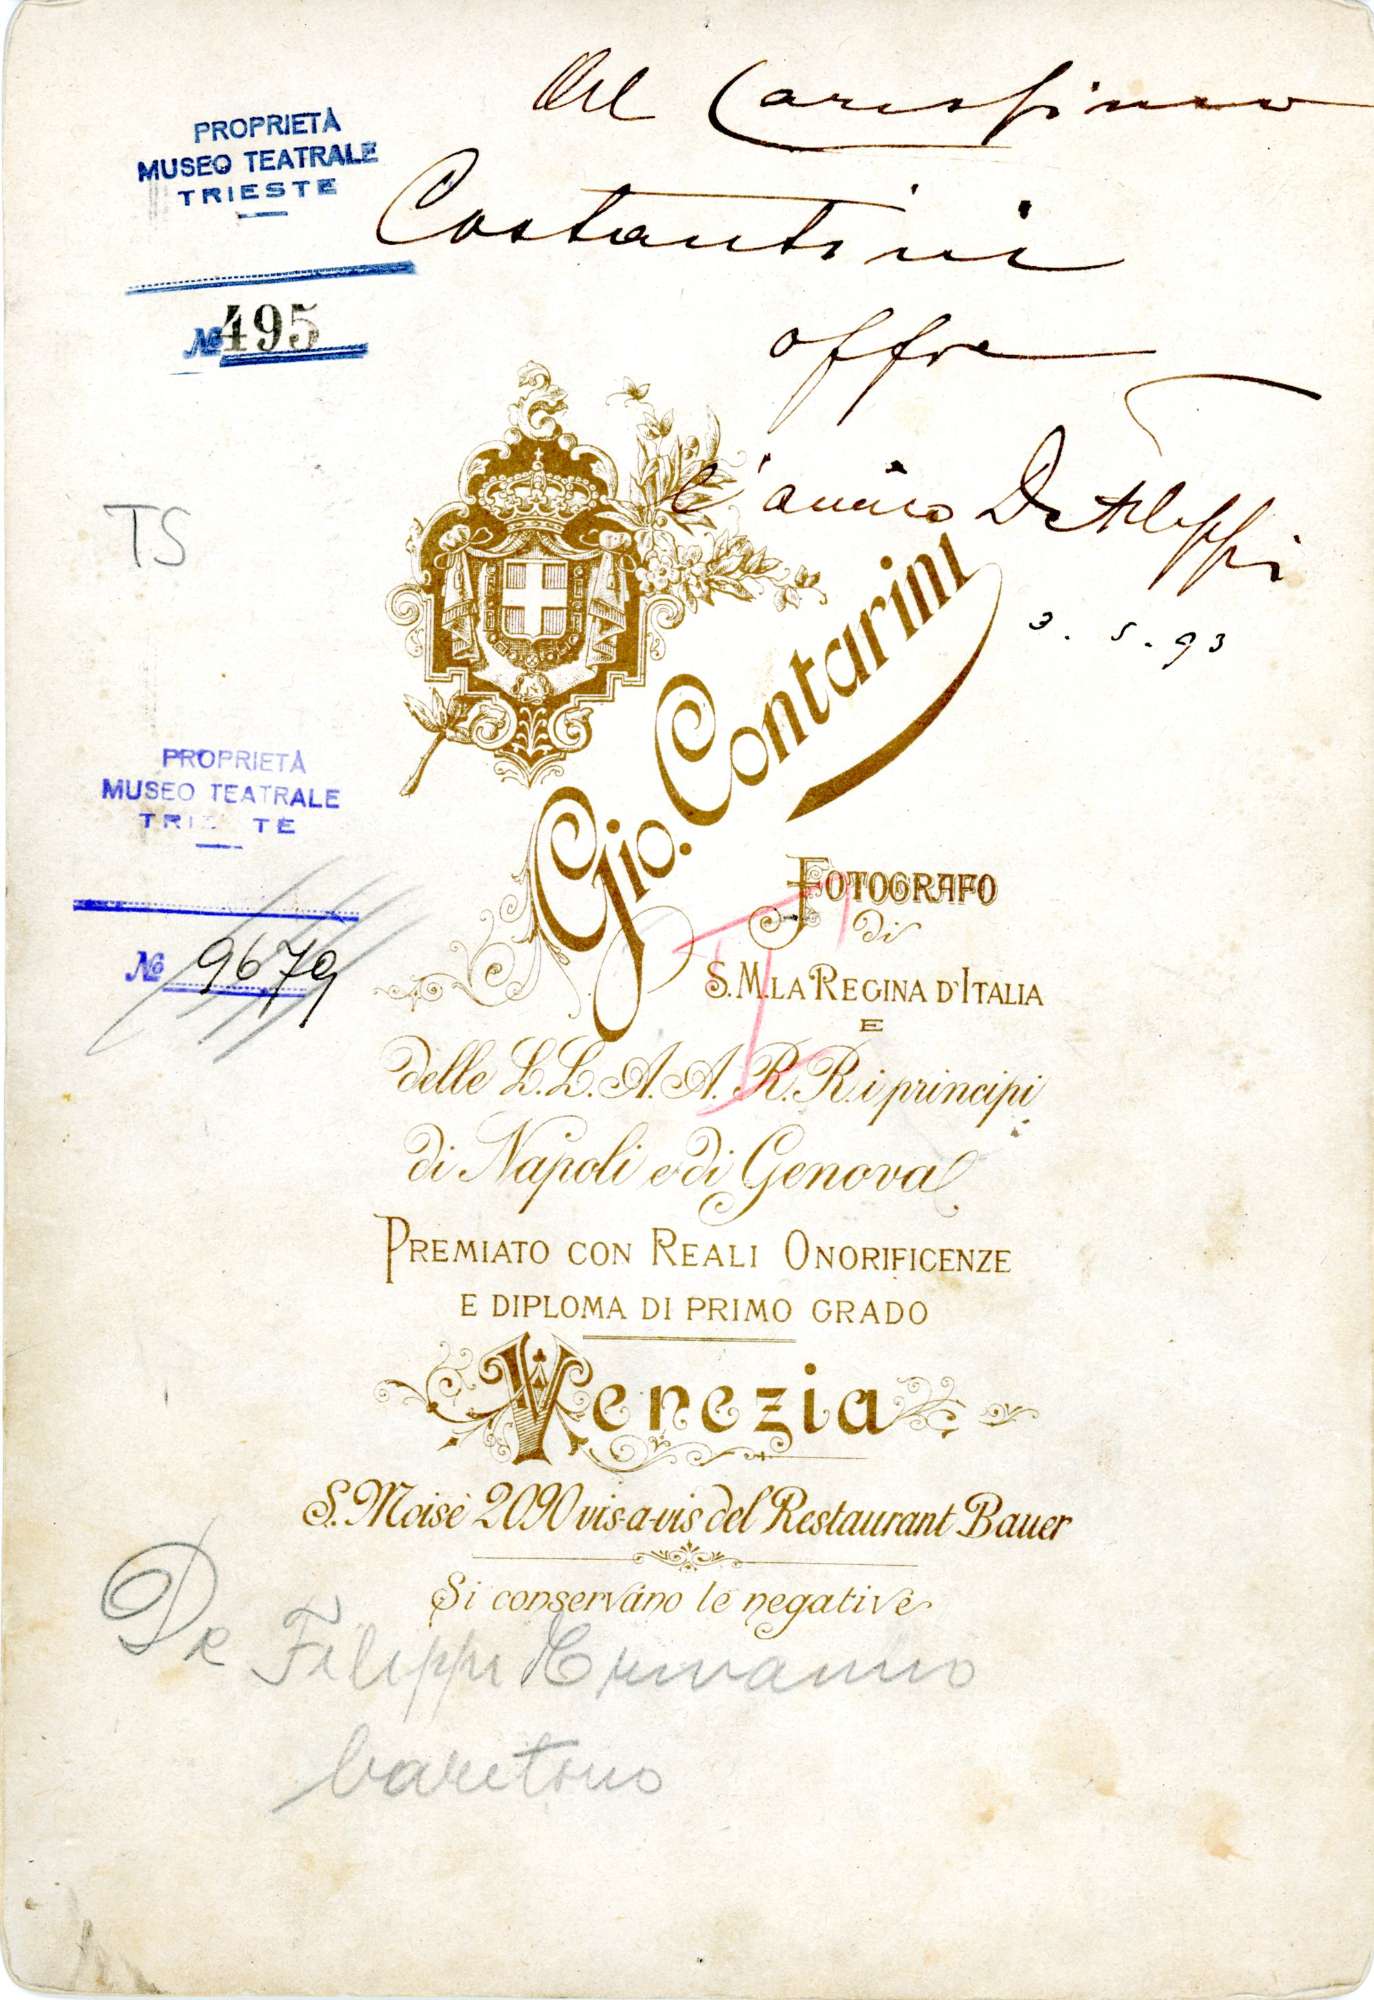 Al Carissimo
Costantini
offre
l'amico De Filippi
3.5.93
PROPRIETÀ
MUSEO TEATRALE
TRIESTE
№ 495
TS
PROPRIETÀ
MUSEO TEATRALE
TRIE TE
№ 9679
Gio. Contarini
FOTOGRAFO
di
S. M. LA REGINA D'ITALIA
E
delle L.L. A.A. R.R. i principi
di Napoli e di Genova
PREMIATO CON REALI ONORIFICENZE
E DIPLOMA DI PRIMO GRADO
Venezia
S. Moisè 2090 vis-a-vis del Restaurant Bauer
Si conservano le negative
De Filippi Ermanno
baritono